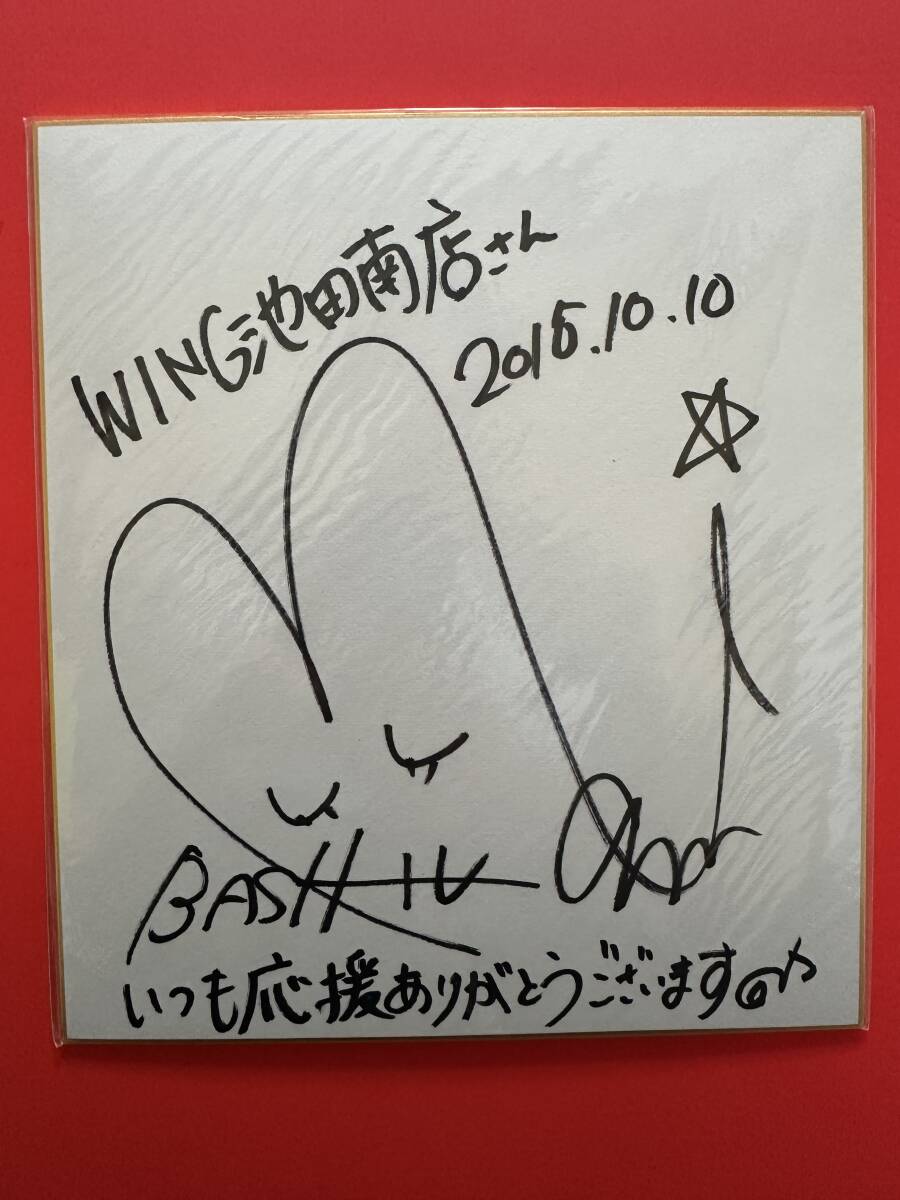 WING池田南店さん
2015.10.10
BASH TV
いつも応援ありがとうございます